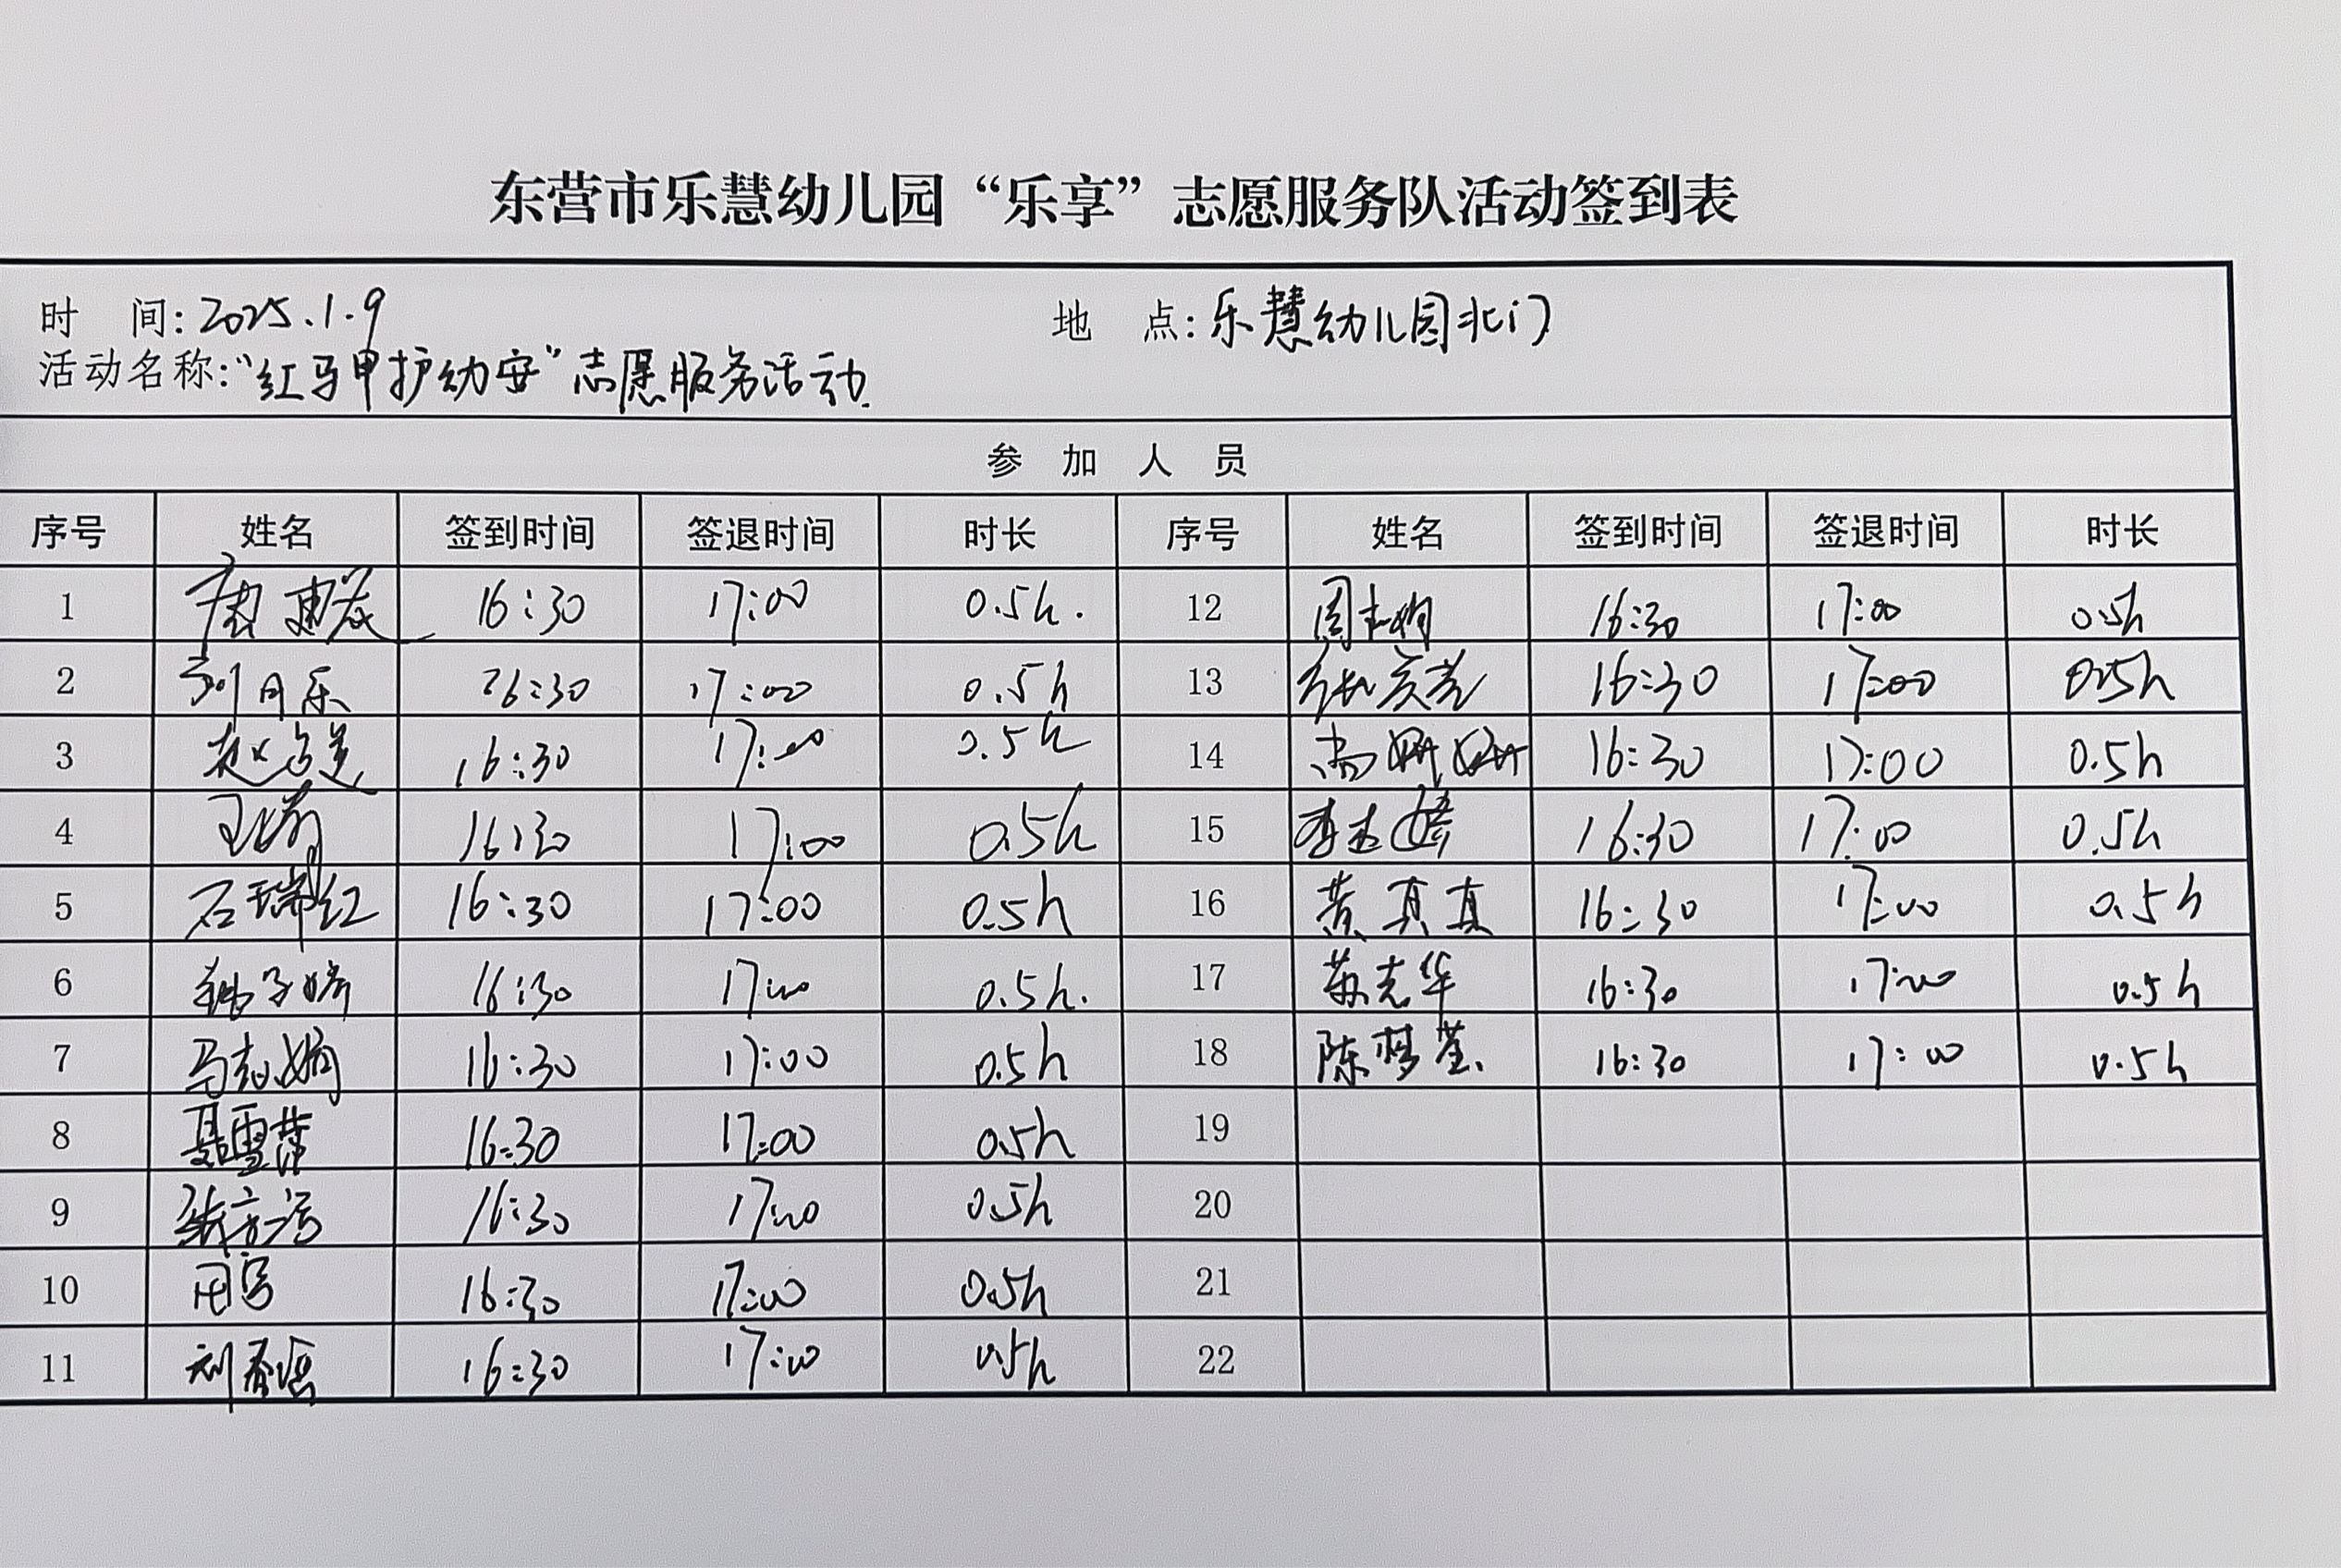 东营市乐慧幼儿园“乐享”志愿服务队活动签到表
时 间: 2025.1.9 地 点: 乐慧幼儿园北门
活动名称: “红马甲护幼安”志愿服务活动.
参 加 人 员
序号 姓名 签到时间 签退时间 时长 序号 姓名 签到时间 签退时间 时长
1 16:30 17:00 0.5h. 12 周 16:30 17:00 0.5h
2 刘月乐 16:30 17:00 0.5h 13 张 16:30 17:00 0.5h
3 赵 16:30 17:00 0.5h 14 尚姗姗 16:30 17:00 0.5h
4 王 16:30 17:00 0.5h 15 李 16:30 17:00 0.5h
5 石瑞红 16:30 17:00 0.5h 16 黄真真 16:30 17:00 0.5h
6 韩子婷 16:30 17:00 0.5h. 17 苏志华 16:30 17:00 0.5h
7 马志娟 16:30 17:00 0.5h 18 陈梦莹 16:30 17:00 0.5h
8 聂雪萍 16:30 17:00 0.5h 19
9 张 16:30 17:00 0.5h 20
10 16:30 17:00 0.5h 21
11 刘春 16:30 17:00 0.5h 22